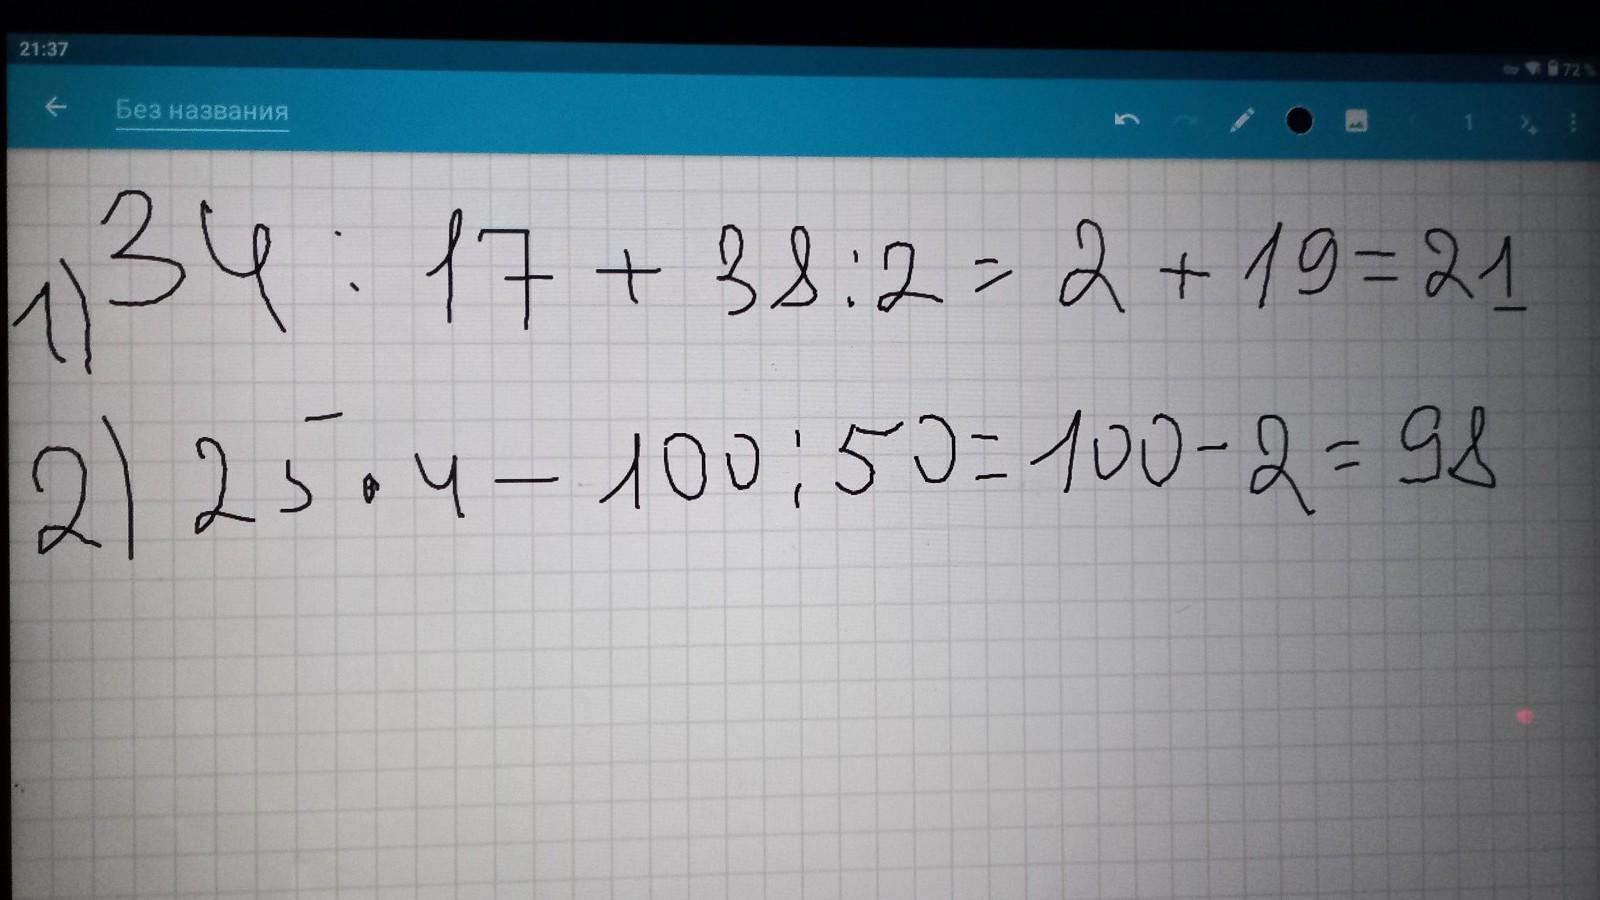 21:37
72%
Без названия
1
1) 34 : 17 + 38 : 2 = 2 + 19 = 21
2) 25 · 4 - 100 : 50 = 100 - 2 = 98